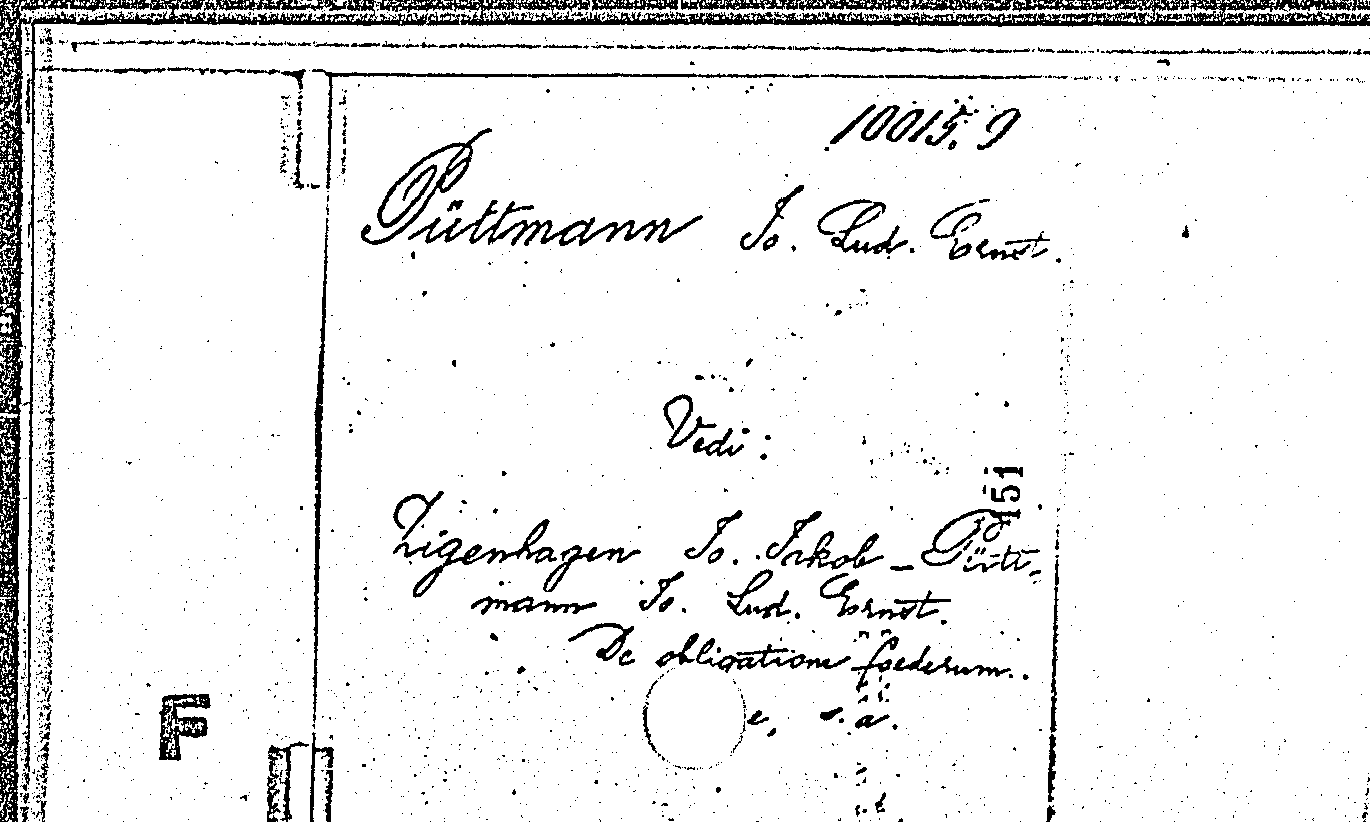 10015. 9
Püttmann Jo. Lud. Ernst.
Vedi:
151
Zigenhagen Jo. Jakob - Pütt-
mann Jo. Lud. Ernst.
De obligatione foederum..
e, s. a.
F